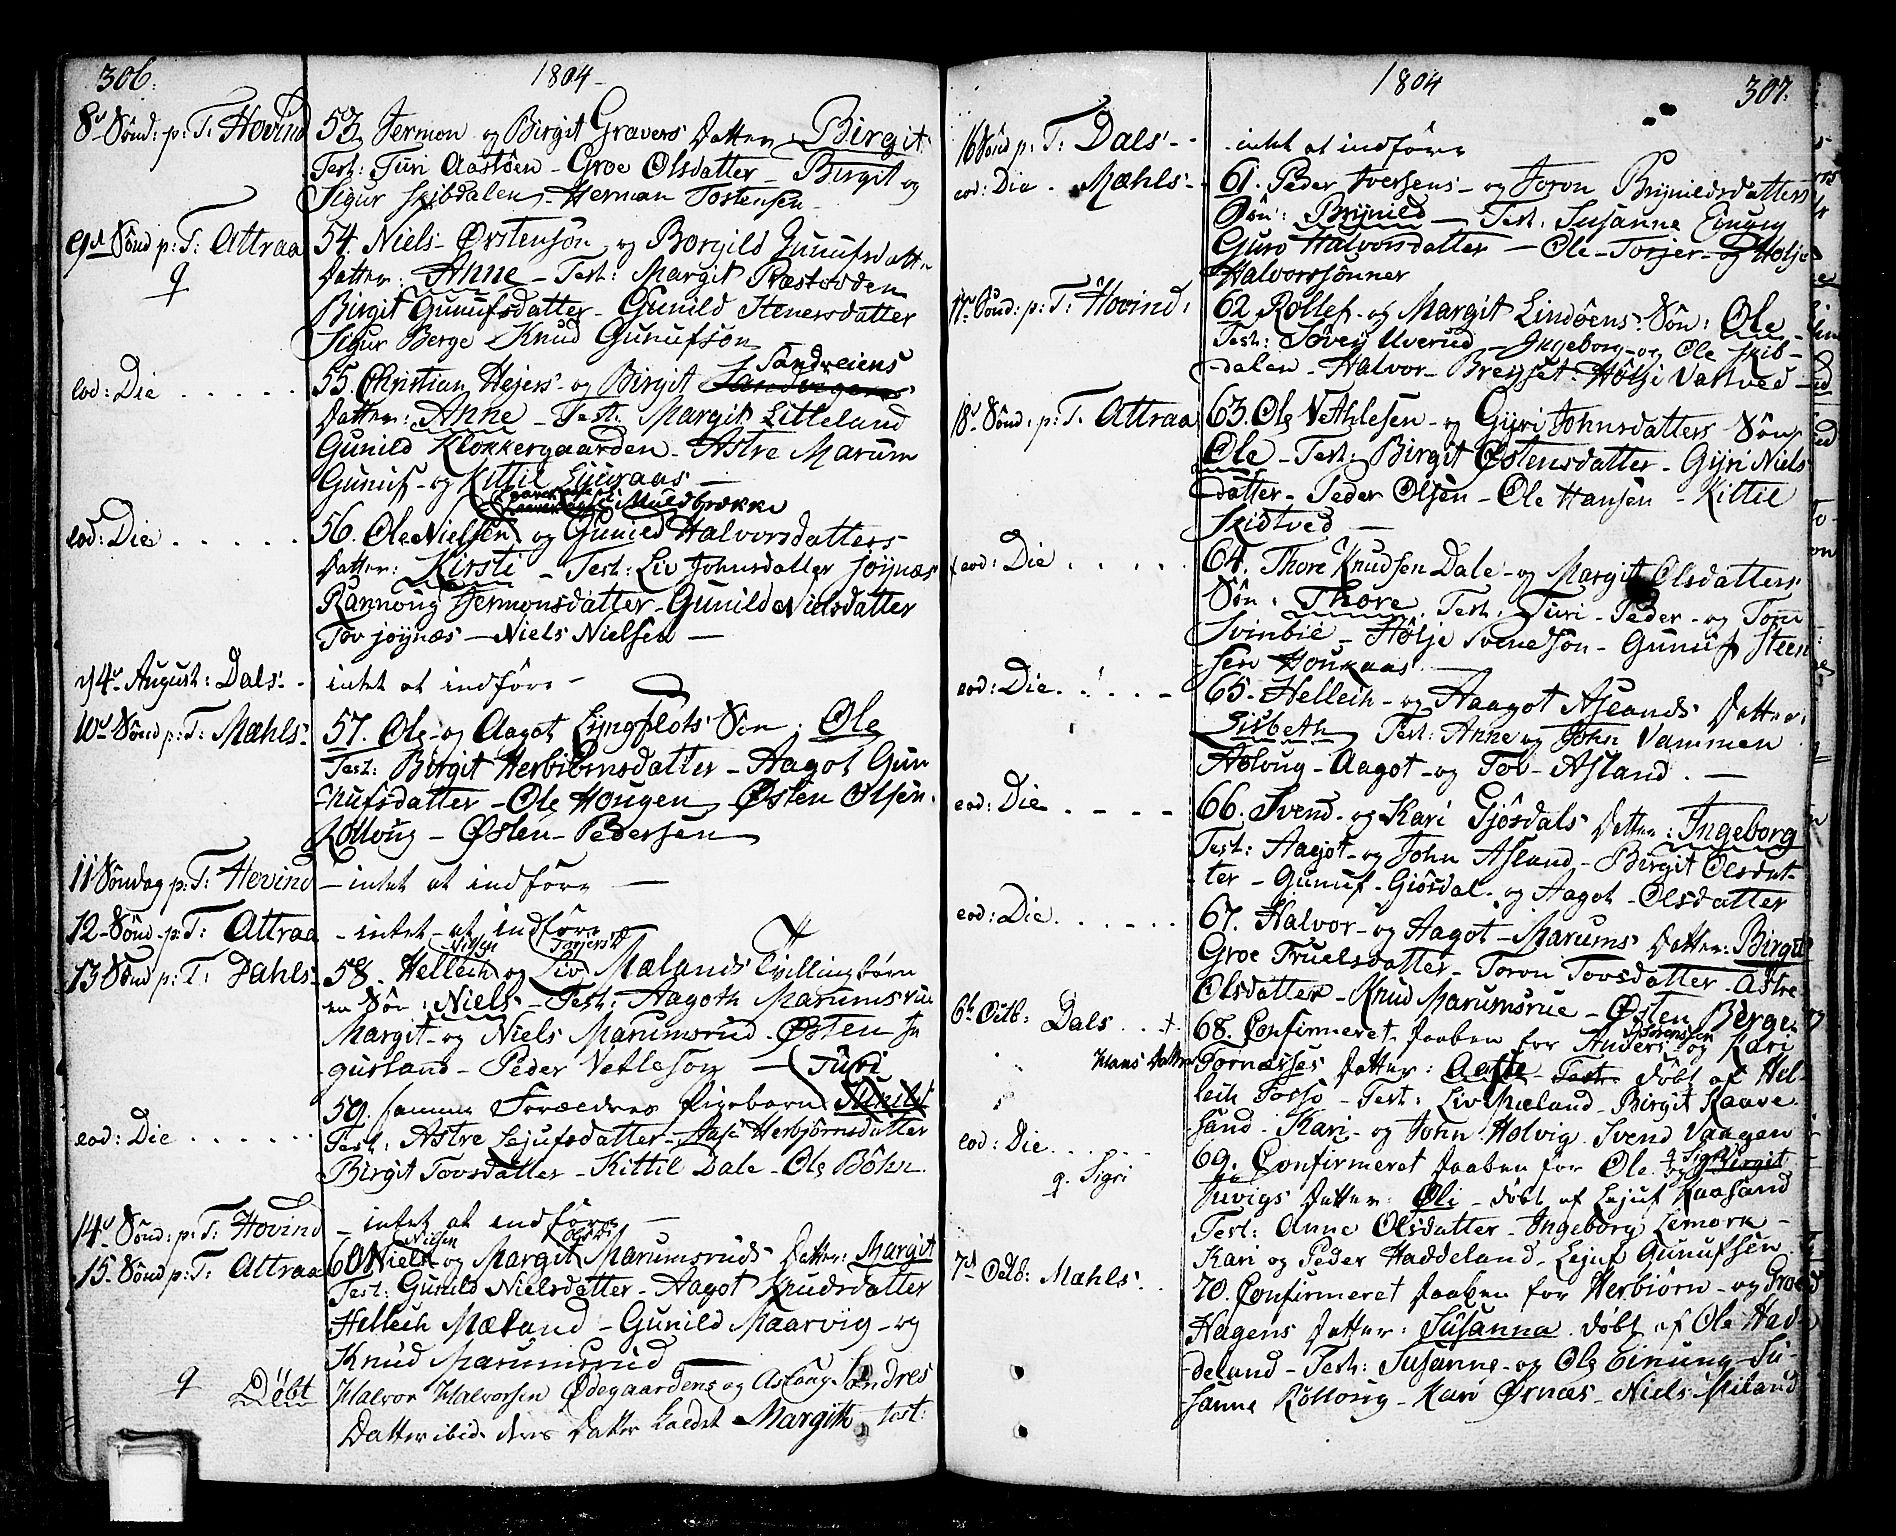 306.
1804
8de Sönd: p: T: Hovind 53. Jermon og Birgit Gravers Datter Birgit
Test: Turi Aastöen - Groe Olsdatter - Birgit og
Sigur Skibdalen - Herman Tostensen
9de Sönd p: T: Attraa 54. Niels Østensön og Borgild Gunufsdatt
Datter: Anne - Test: Margit Præstodden
Birgit Gunufsdatter - Gunild Stenersdatter
Sigur Berge Knud Gunufsön
Sandveiens
eod: Die 55. Christian Hejers og Birgit
Datter: Anne - Test: Margit Litleland
Gunild Klokkergaarden - Astre Marum
Gunuf og Kittil
Muldbrække
eod: Die 56. Ole Nielsen og Gunild Halvorsdatters
Datter: Kirsti - Test: Liv Johnsdatter jöynæs
Rannoug Hermonsdatter - Gunild Nielsdatter
Tov jöynæs - Niels Nielsen -
14de August: Dals - intet at indföre -
10de Sönd p: T: Mæhls 57. Ole og Aagot Lyngflots Sön: Ole
Test: Birgit Herbiörnsdatter - Aagot Gun
nufsdatter - Ole Hougen - Østen Olsen
Rolloug - Østen Pedersen
11 Söndag p: T: Hovind - intet at indföre -
12 Sönd p: T: Attraa - intet at indföre
Nilsen Torjersd
13 Sönd p: T: Dahls 58. Hellech og Liv Mælands Tvillingbörn
en Sön: Niels - Test: Aagoth Marumsrue
Margit og Niels Marumsrud - Østen In
gusland - Peder Vetleson - Turi
59. samme Forældres Pigebarn Gunild
eod: Die Test: Astre Lejufsdatter - Aase Herbjörnsdatter
Birgit Tovsdatter - Kittil Dale - Ole Böhn
14de Sönd: p: T: Hovind - intet at indföre -
Nielsen Olsd:
15 Sönd p: T: Attraa 60 Niels og Margit Marumsruds Datter: Margit
Test: Gunild Nielsdatter - Aagot Knudsdatter
Hellech Mæland - Gunild Maarvig og
Knud Marumsrud
Döbt Halvor Halvorsen Ödegaardens og Aslaug Sondres
Datter ibid. deres Datter kaldet Margith test:
1804
307.
16 Sönd p: T: Dals - intet at indföre
eod: Die Mæhls 61. Peder Iversens og Joron Brynildsdatters
Sön: Brynild - Test: Susanne Einung
Guro Halvorsdatter - Ole - Torjer og Holje
Halvorssönner
17 Sönd: p: T: Hovind: 62 Rollef og Margit Lindöens Sön: Ole
Test: Sövej Uverud - Ingeborg og Ole Skib-
dalen - Halvor Bregset - Hölje Vatved
18 Sönd: p: T: Attraa 63. Ole Vethlesen og Gyri Johnsdatters Sön
Ole - Test: Birgit Østensdatter - Gyri Niels
datter - Peder Olsen - Ole Hansen - Kittil
Skidtved -
eod: Die 64. Thore Knudsen Dale og Margit Olsdatters
Sön: Thore. Test: Turi - Peder og Tom
Svinbie - Hölje Svendsön - Gunuf Steen
sen Houkaas
eod: Die 65. Hellech og Aagot Aslands Datter:
Lisbeth Test: Anne og John Vammen
Asloug - Aagot og Tov Asland. -
eod: Die 66. Svend og Kari Gjösdals Datter: Ingeborg
Test: Aagot og John Asland - Birgit Olsdat-
ter - Gunuf Giösdal og Aagot Olsdatter
eod: Die 67. Halvor og Aagot Marums Datter: Birgit
Groe Truelsdatter - Toron Tovsdatter - Astre
Olsdatter - Knud Marumsrue - Østen Berge
6te Octb: Dals 68. Confirmeret Daaben for Anders og Kari
Hans Datter Tornæsses Datter: Aaste Test: döbt af Hel-
lech Fosso - Test: Liv Mæland - Birgit Kaave
sand - Kari og John Holvig Svend Vaagen
q Sigri
eod: Die 69. Confirmeret Daaben for Ole og Birgit
q. Sigri Juvigs Datter: Oli - döbt af Lejuf Kaasand
Test: Anne Olsdatter - Ingeborg Lemork -
Kari og Peder Haddeland - Lejuf Gunufsen
7de Octb: Mæhls 70. Confirmeret Daaben for Herbiörn og Groe
Hagens Datter: Susanna. döbt af Ole Had-
deland - Test: Susanne og Ole Einung - Su-
sanne Rolloug - Kari Ørnæs - Niels Miland